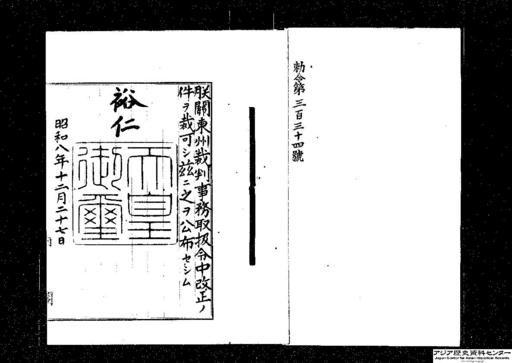 勅令第三百三十四號
朕關東州裁判事務取扱令中改正ノ
件ヲ裁可シ玆ニ之ヲ公布セシム
裕仁
天皇
御璽
昭和八年十二月二十七日
アジア歴史資料センター
Japan Center for Asian Historical Records